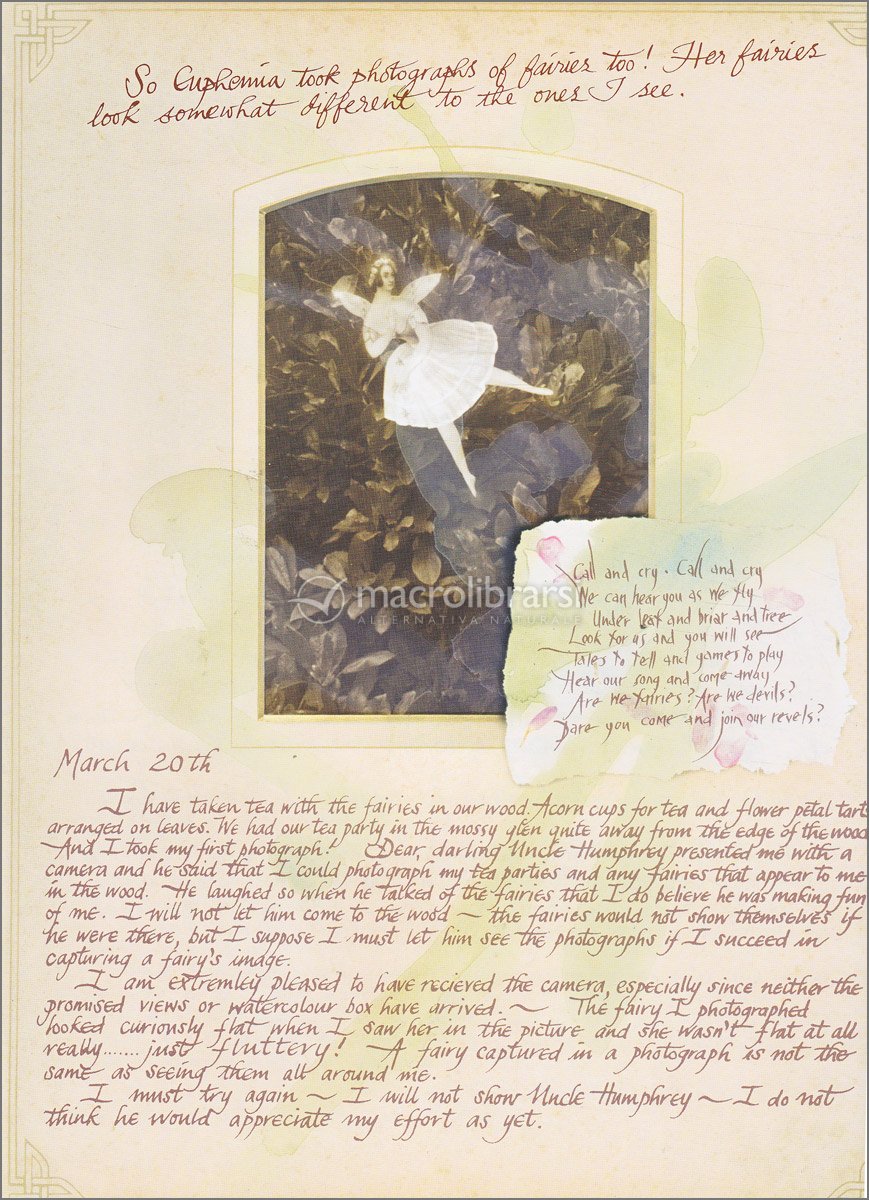 So Euphemia took photographs of fairies too! Her fairies
look somewhat different to the ones I see.
Call and cry. Call and cry
We can hear you as we fly
Under leaf and briar and tree
Look for us and you will see
Tales to tell and games to play
Hear our song and come away
Are we fairies? Are we devils?
Dare you come and join our revels?
macrolibrarsi
ALTERNATIVA NATURALE
March 20th
I have taken tea with the fairies in our wood. Acorn cups for tea and flower petal tart
arranged on leaves. We had our tea party in the mossy glen quite away from the edge of the wood
And I took my first photograph! Dear, darling Uncle Humphrey presented me with a
camera and he said that I could photograph my tea parties and any fairies that appear to me
in the wood. He laughed so when he talked of the fairies that I do believe he was making fun
of me. I will not let him come to the wood ~ the fairies would not show themselves if
he were there, but I suppose I must let him see the photographs if I succeed in
capturing a fairy's image.
I am extremley pleased to have recieved the camera, especially since neither the
promised views or watercolour box have arrived. ~ The fairy I photographed
looked curiously flat when I saw her in the picture and she wasn't flat at all
really....... just fluttery! A fairy captured in a photograph is not the
same as seeing them all around me.
I must try again ~ I will not show Uncle Humphrey ~ I do not
think he would appreciate my effort as yet.